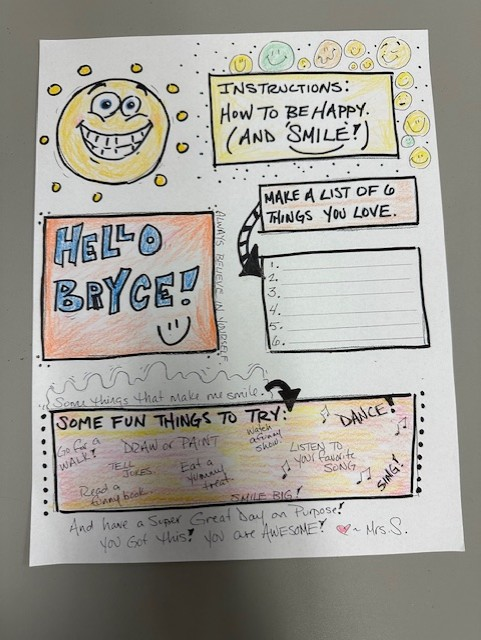 INSTRUCTIONS:
HOW TO BE HAPPY.
(AND 'SMILE!')
MAKE A LIST OF 6
THINGS YOU LOVE.
HELLO
BRYCE!
ALWAYS BELIEVE IN YOURSELF
1.
2.
3.
4.
5.
6.
Some things that make me smile.
SOME FUN THINGS TO TRY:
DANCE!
Go for a
WALK!
DRAW or PAINT
Watch
a funny
show.
LISTEN TO
YOUR favorite
SONG
TELL
JOKES.
Eat a
yummy
treat.
SING!
Read a
funny book.
SMILE BIG!
And have a Super Great Day on Purpose!
You Got this! You are AWESOME! ❤~ Mrs. S.